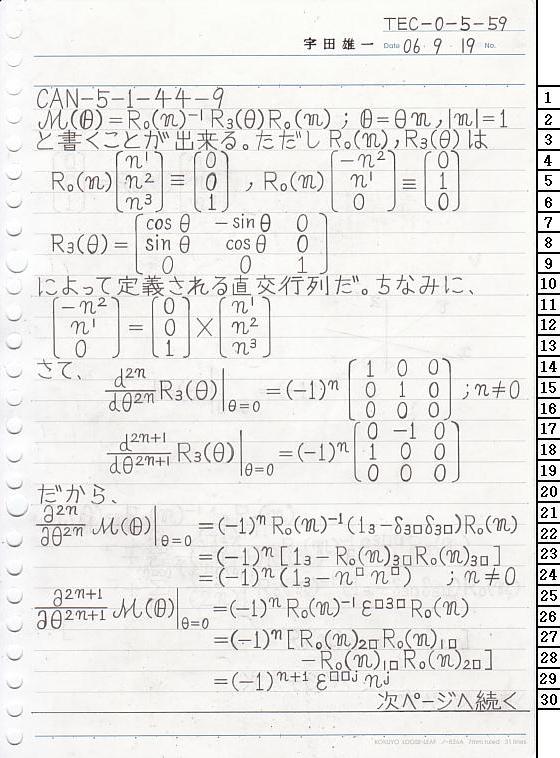 TEC-0-5-59
宇田雄一 Date 06 9 19 No.
CAN-5-1-44-9
M(θ)=R₀(n)⁻¹R₃(θ)R₀(n) ; θ=θn, |n|=1
と書くことが出来る。ただし R₀(n), R₃(θ) は
R₀(n) [n¹ n² n³] ≡ [0 0 1] , R₀(n) [-n² n¹ 0] ≡ [0 1 0]
R₃(θ) = [cosθ -sinθ 0
sinθ cosθ 0
0 0 1]
によって定義される直交行列だ。ちなみに、
[-n² n¹ 0] = [0 0 1] × [n¹ n² n³]
さて、
d²ⁿ/dθ²ⁿ R₃(θ)|θ=0 = (-1)ⁿ [1 0 0
0 1 0
0 0 0] ; n≠0
d²ⁿ⁺¹/dθ²ⁿ⁺¹ R₃(θ)|θ=0 = (-1)ⁿ [0 -1 0
1 0 0
0 0 0]
だから、
∂²ⁿ/∂θ²ⁿ M(θ)|θ=0 = (-1)ⁿR₀(n)⁻¹(1₃-δ₃□δ₃□)R₀(n)
= (-1)ⁿ[1₃-R₀(n)₃□R₀(n)₃□]
= (-1)ⁿ(1₃-n□n□) ; n≠0
∂²ⁿ⁺¹/∂θ²ⁿ⁺¹ M(θ)|θ=0 = (-1)ⁿR₀(n)⁻¹ε□3□R₀(n)
= (-1)ⁿ[R₀(n)₂□R₀(n)₁□
-R₀(n)₁□R₀(n)₂□]
= (-1)ⁿ⁺¹ε□□ʲnʲ
次ページへ続く
KOKUYO LOOSE-LEAF ノ-826A 7mm ruled 31 lines
1
2
3
4
5
6
7
8
9
10
11
12
13
14
15
16
17
18
19
20
21
22
23
24
25
26
27
28
29
30